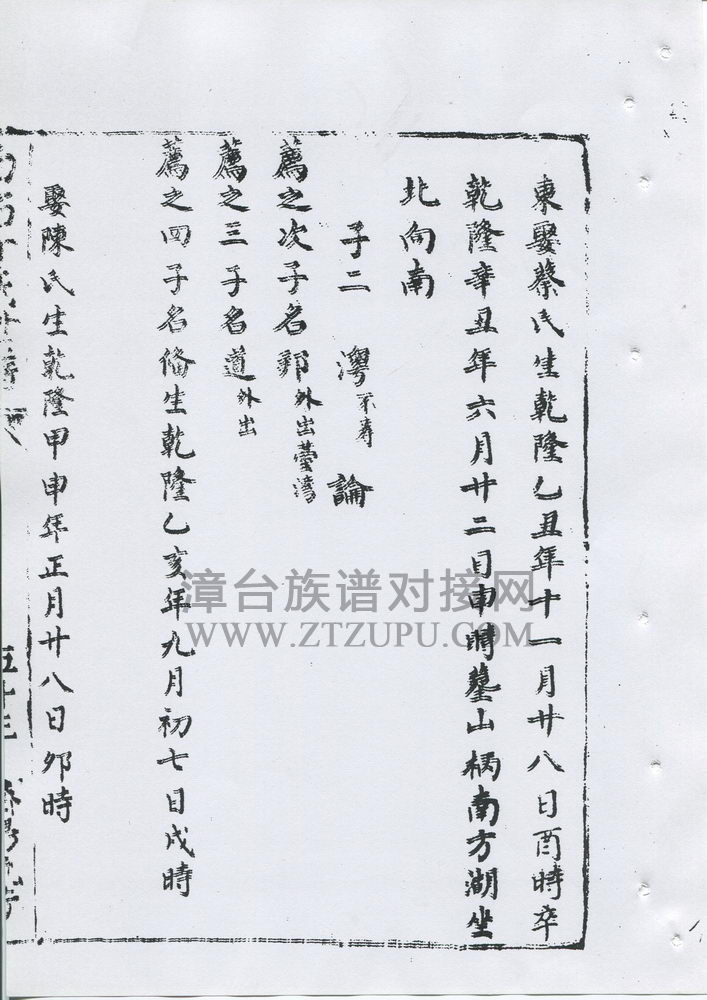 東娶蔡氏生乾隆乙丑年十一月廿八日酉時卒
乾隆辛丑年六月廿二日申時塟山柄南方湖坐
北向南
子二 澪不寿 論
薦之次子名郭外出薹湾
薦之三子名道外出
薦之四子名俻生乾隆乙亥年九月初七日戌時
娶陳氏生乾隆甲申年正月廿八日夘時
五十三
漳台族谱对接网
WWW.ZTZUPU.COM